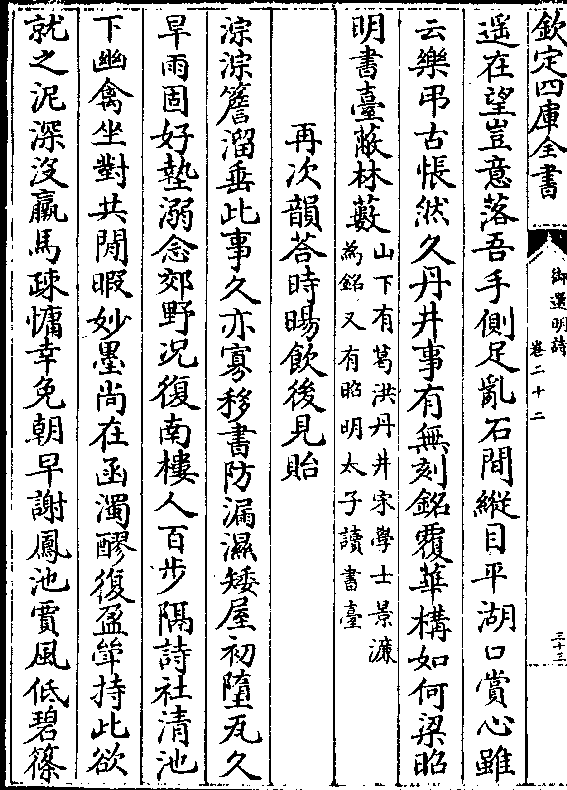 欽定四庫全書
御選明詩
卷二十二
三十三
遥在望豈意落吾手側足亂石間縱目平湖口賞心雖
云樂弔古悵然久丹井事有無刻銘覆華構如何梁昭
明書臺蔽林藪山下有葛洪丹井宋學士景濂
為銘又有昭明太子讀書臺
再次韻荅時暘飲後見貽
淙淙簷溜垂此事久亦寡移書防漏濕矮屋初墮瓦久
旱雨固好墊溺念郊野况復南樓人百步隔詩社清池
下幽禽坐對共閒暇妙墨尚在函濁醪復盈斚持此欲
就之泥深沒羸馬疎慵幸免朝早謝鳳池賈風低碧篠